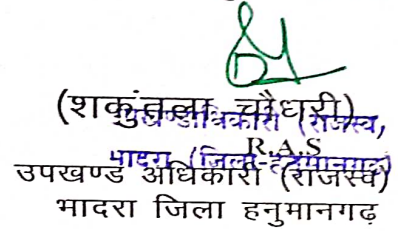 (शकुंतला चौधरी)
उपखण्डाधिकारी (राजस्व,
R.A.S
भादरा (जिला-हनुमानगढ़)
उपखण्ड अधिकारी (राजस्व)
भादरा जिला हनुमानगढ़